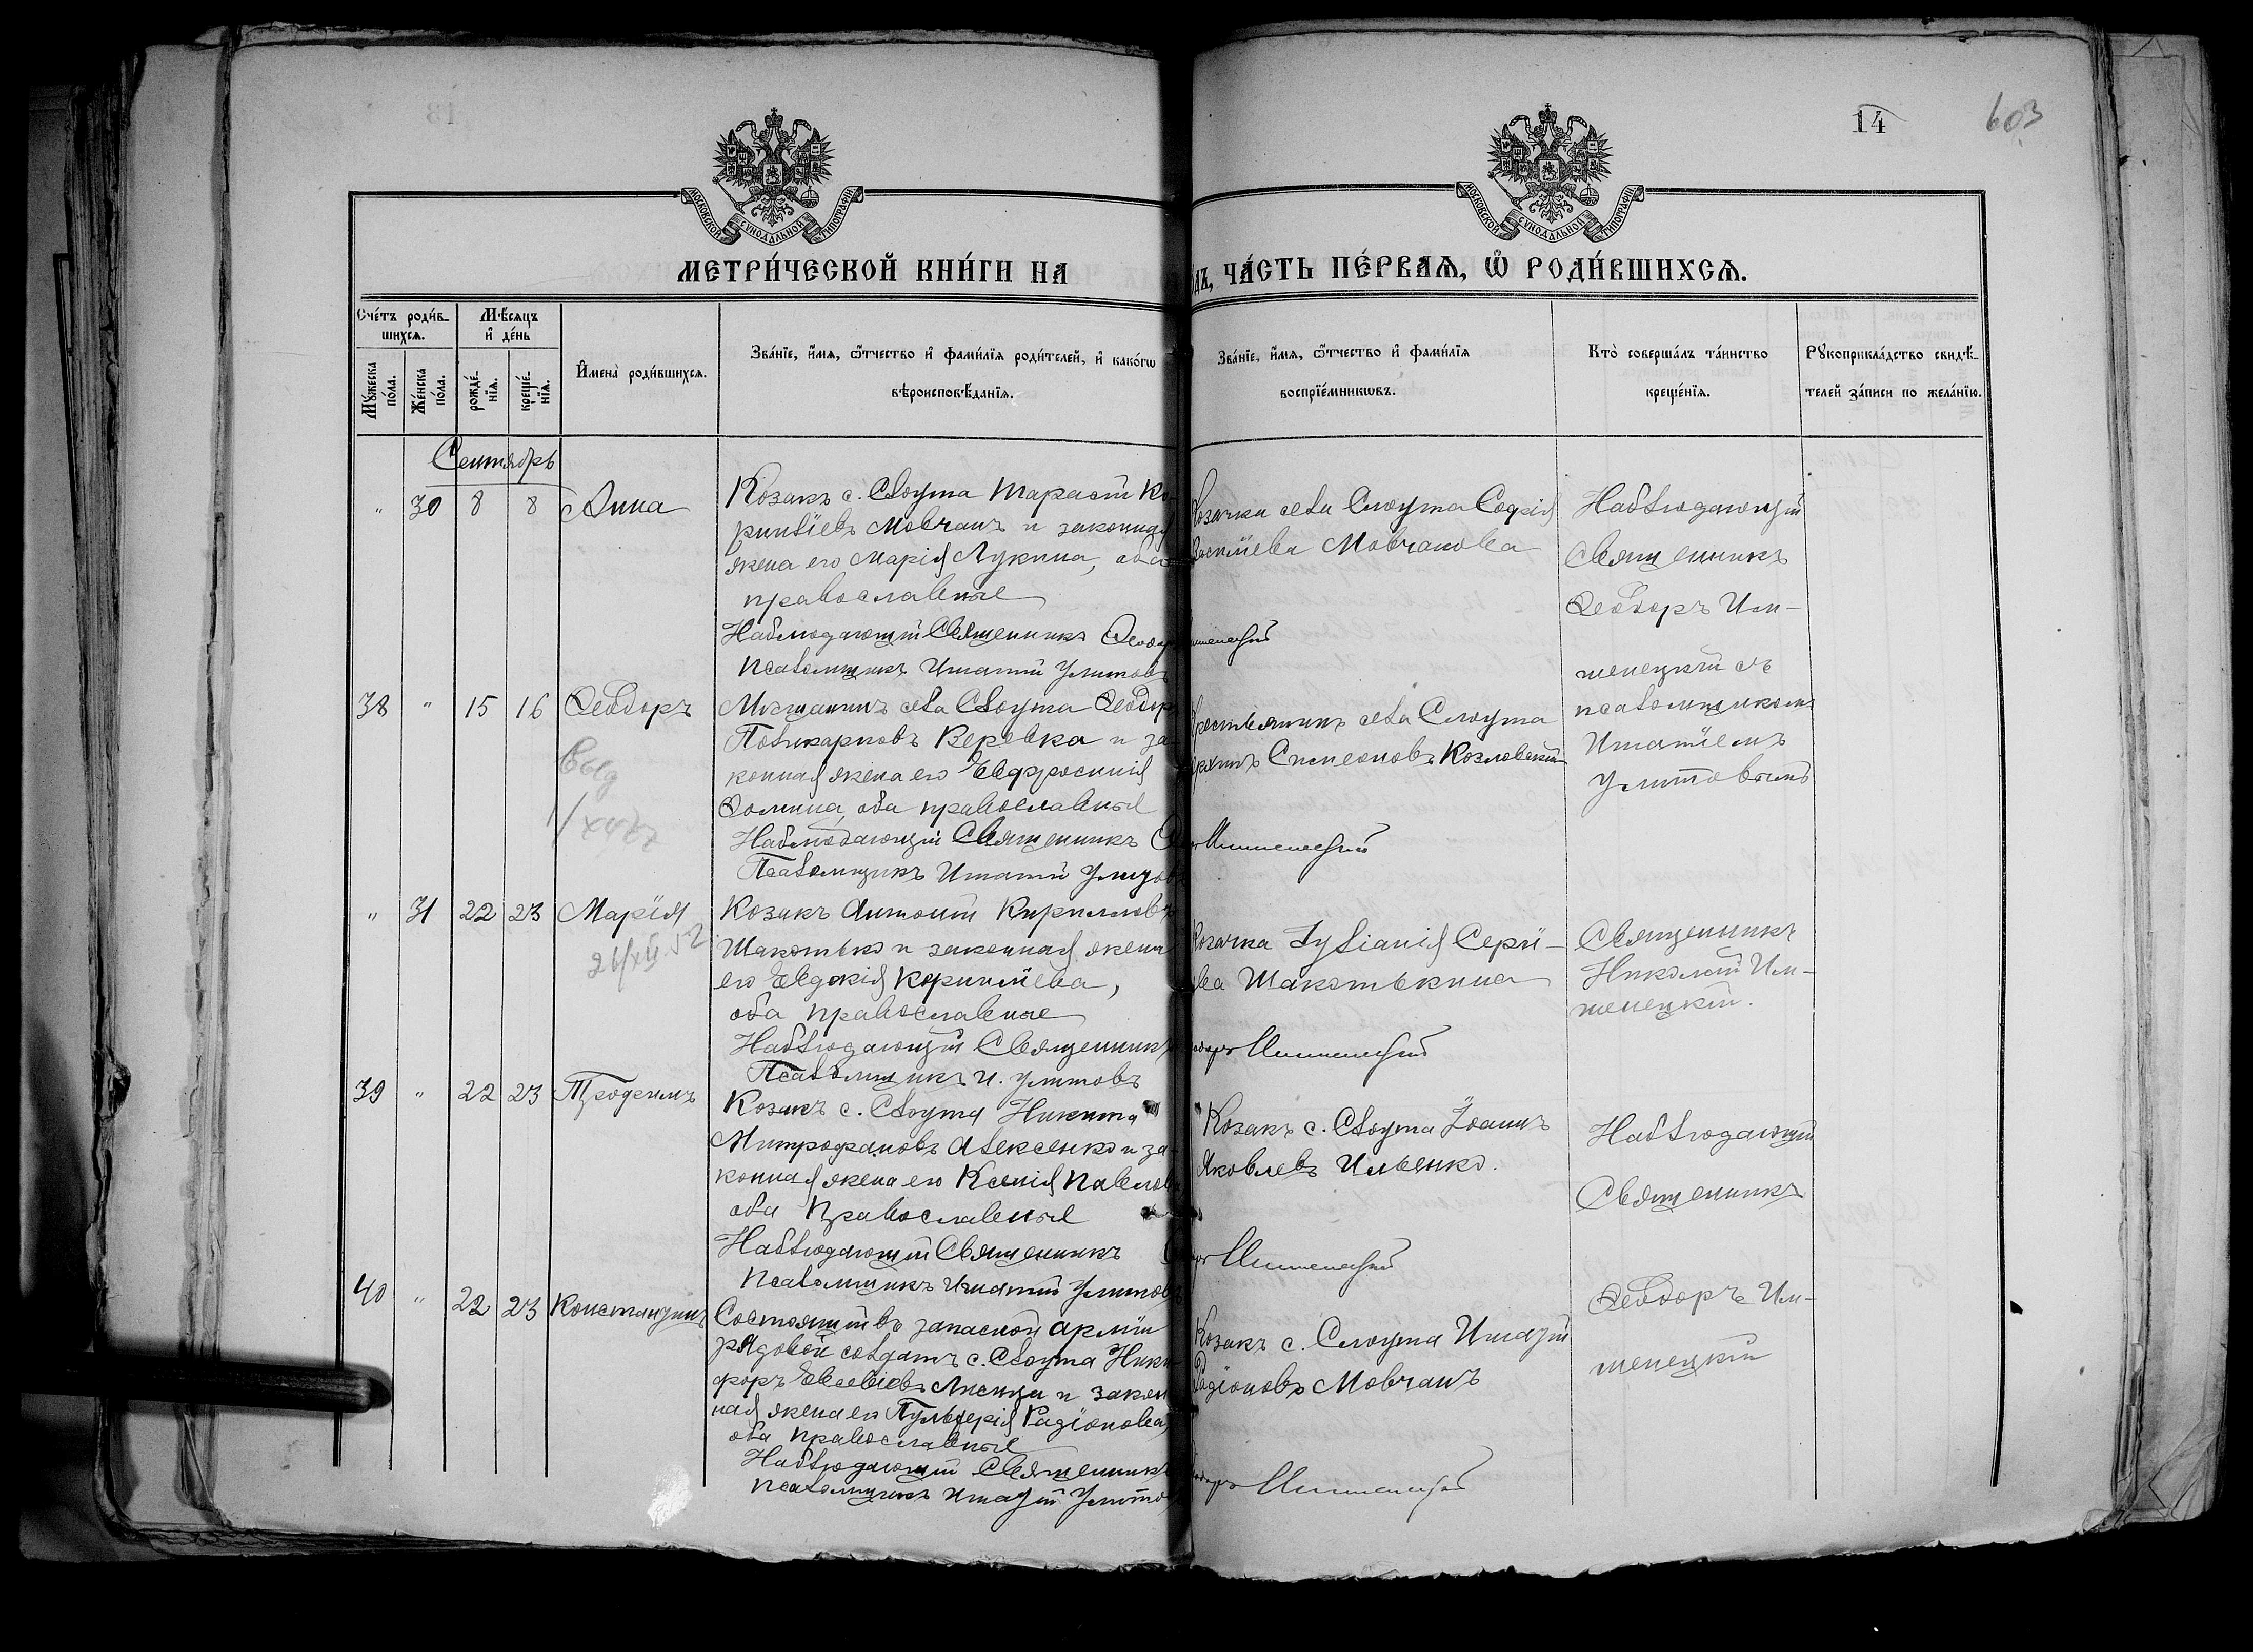 14
603
МОСКОВСКОЙ СѴНОДАЛЬНОЙ ТИПОГРАФІИ
МОСКОВСКОЙ СѴНОДАЛЬНОЙ ТИПОГРАФІИ
МЕТРИ́ЧЕСКОЙ КНИ́ГИ НА
ЧА́СТЬ ПЕ́РВАѦ, Ѽ РОДИ́ВШИХСѦ.
Сче́тъ роди́в-
шихся.
Му́жеска по́ла.
Же́нска по́ла.
Мѣ́сяцъ
и҆ де́нь
рожде́-
нїя.
креще́-
нїя.
И҆мена̀ роди́вшихся.
Зва́нїе, и҆́мя, ѻ҆́тчество и҆ фами́лїя роди́телей, и҆ како́гѡ
вѣроисповѣ́данїя.
Зва́нїе, и҆́мя, ѻ҆́тчество и҆ фами́лїя
воспрїе́мникѡвъ.
Кто̀ соверша́лъ та́инство
креще́нїя.
Рꙋкоприкла́дство свидѣ́-
телей за́писи по жела́нїю.
Сентябрь
" 30 8 8 Анна
Козакъ с. Слоута Тарасій Ко-
рниліевъ Мовчанъ и законная
жена его Марія Лукина, оба
православные
Наблюдающій Священникъ
Псаломщикъ Игнатій
Козачка села Слоута Софія
Мовчанова
Наблюдающій
Священникъ
Ѳеодоръ Им-
шенецкій съ
псаломщикомъ
Игнатіемъ
38 " 15 16 Ѳеодоръ
Мѣщанинъ села Слоута Ѳеодоръ
Поликарповъ Веревка и за-
конная жена его Евфросинія
Ѳомина, оба православные
Наблюдающій Священникъ
Псаломщикъ Игнатій
Крестьянинъ села Слоута
Симеоновъ Козловскій
Имшенецкій
" 31 22 23 Марія
26/XII 52
Козакъ Антоній Кирилловъ
Шакотько и законная жена
его Евдокія Корниліева,
оба православные
Наблюдающій Священникъ
Псаломщикъ И.
Козачка Іуліанія Сергі-
ева Шакотькина
Имшенецкій
Священникъ
Николай Им-
шенецкій.
39 " 22 23 Трофимъ
Козакъ с. Слоута Никита
Митрофановъ Алексенко и за-
конная жена его Ксенія Павлова
оба Православные
Наблюдающій Священникъ
Псаломщикъ Игнатій
Козакъ с. Слоута Іоаннъ
Яковлевъ Ильенко.
Имшенецкій
Наблюдающій
Священникъ
Ѳеодоръ Им-
шенецкій
40 " 22 23 Константинъ
Состоящій въ запасной арміи
рядовой солдатъ с. Слоута Ники-
форъ Евсевіевъ Лисица и закон-
ная жена его Пульхерія Радіонова,
оба православные
Наблюдающій Священникъ
Псаломщикъ Игнатій
Козакъ с. Слоута Игнатій
Радіоновъ Мовчанъ
Имшенецкій